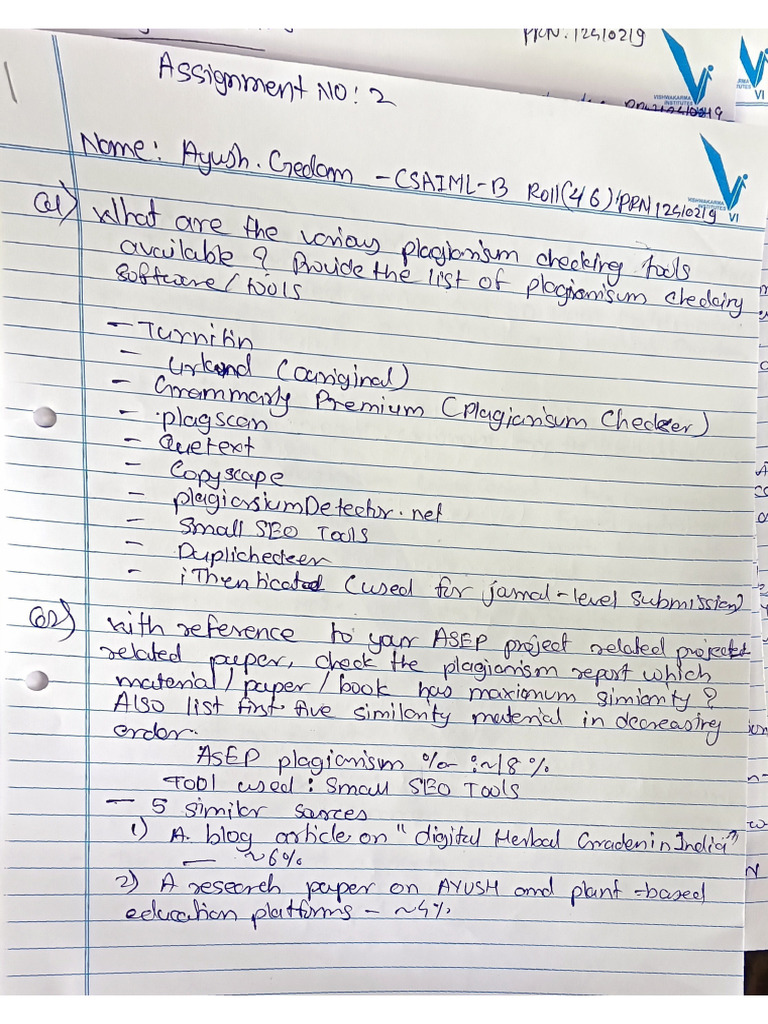 PRN: 12410219
VISHWAKARMA
INSTITUTES
VI
VI
Assignment NO: 2
Name: Ayush. Gedam - CSAIML-B Roll(46) PRN 12410219
VISHWAKARMA
INSTITUTES
VI
Q1) What are the various plagiarism checking tools
available? Provide the list of plagiarism checking
software/tools
- Turnitin
- Urkund (Ouriginal)
- Grammarly Premium (Plagiarism Checker)
- plagscan
- Quetext
- Copyscape
- plagiarsiumDetector.net
- Small SEO Tools
- Duplichecker
- iThenticated (used for jarnal-level submission)
Q2) With reference to your ASEP project related projected
related paper, check the plagiarism report which
material/paper/book has maxiomum simiarity?
Also list first five similarity material in decreasing
order.
ASEP plagiarism % :~18%
Tool used: Small SEO Tools
- 5 similar sources
1) A. blog article on "digital Herbal Graden in India"
- ~6%
2) A research paper on AYUSH and plant-based
education platforms - ~4%